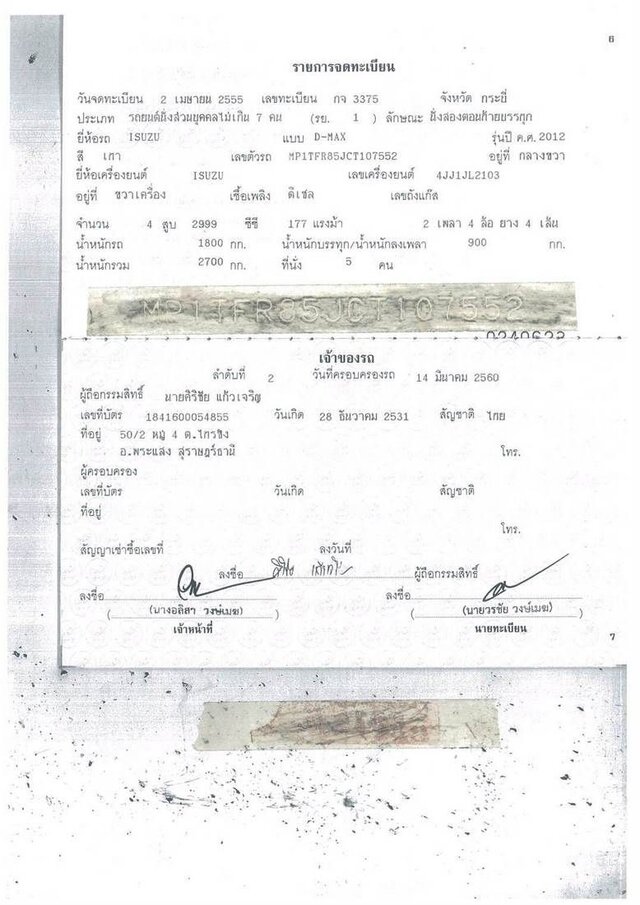 6
รายการจดทะเบียน
วันจดทะเบียน 2 เมษายน 2555 เลขทะเบียน กจ 3375 จังหวัด กระบี่
ประเภท รถยนต์นั่งส่วนบุคคลไม่เกิน 7 คน (รย. 1 ) ลักษณะ นั่งสองตอนท้ายบรรทุก
ยี่ห้อรถ ISUZU แบบ D-MAX รุ่นปี ค.ศ. 2012
สี เทา เลขตัวรถ MP1TFR85JCT107552 อยู่ที่ กลางขวา
ยี่ห้อเครื่องยนต์ ISUZU เลขเครื่องยนต์ 4JJ1JL2103
อยู่ที่ ขวาเครื่อง เชื้อเพลิง ดีเซล เลขถังแก๊ส
จำนวน 4 สูบ 2999 ซีซี 177 แรงม้า 2 เพลา 4 ล้อ ยาง 4 เส้น
น้ำหนักรถ 1800 กก. น้ำหนักบรรทุก/น้ำหนักลงเพลา 900 กก.
น้ำหนักรวม 2700 กก. ที่นั่ง 5 คน
MP1TFR85JCT107552
เจ้าของรถ
ลำดับที่ 2 วันที่ครอบครองรถ 14 มีนาคม 2560
ผู้ถือกรรมสิทธิ์ นายศิริชัย แก้วเจริญ
เลขที่บัตร 1841600054855 วันเกิด 28 ธันวาคม 2531 สัญชาติ ไทย
ที่อยู่ 50/2 หมู่ 4 ต.ไทรขึง
อ.พระแสง สุราษฎร์ธานี โทร.
ผู้ครอบครอง
เลขที่บัตร วันเกิด สัญชาติ
ที่อยู่
โทร.
สัญญาเช่าซื้อเลขที่ ลงวันที่
ลงชื่อ ผู้ถือกรรมสิทธิ์
ลงชื่อ ลงชื่อ
(นางอลิสา วงษ์เมฆ) (นายวรชัย วงษ์เมฆ)
เจ้าหน้าที่ นายทะเบียน
7